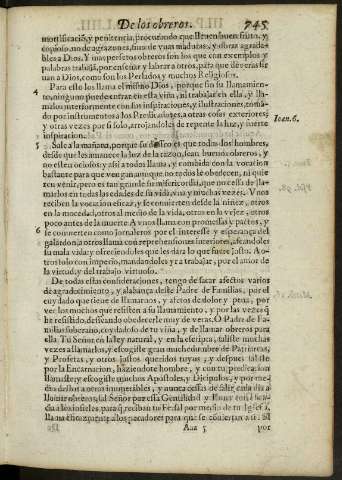 De los obreros. 745
mortificació, y penitencia, procurando que lleuen buen fruto, y
copioso, no de agrazones, sino de vuas maduras, y obras agrada-
bles a Dios. Y mas perfetos obreros son los que con exemplos y
palabras trabajã, por enseñar y labrar a otros, para que de veras sir
uan a Dios, como son los Perlados y muchos Religiosos.
4 Para esto los llama el mismo Dios, porque sin su llamamien-
to, ninguno puede entrar en esta viña, ni trabajar en ella, y llã-
malos interiormente con sus inspiraciones, y ilustraciones, toman-
do por instrumentos a los Predicadores, a otras cosas exteriores,
y otras vezes por si solo, arrojandoles de repente la luz, y fuerte
inspiracion.
Ioan. 6.
5 Sale a la mañana, porque su desseo es que todos los hombres,
desde que les amanece la luz de la razon, sean buenos obreros, y
no esten ociosos, y assi a todos llama, y combida con la vocacion
bastante para que vengan aunque no todos le obedecen, ni quie
ren venir, pero es tan grande su misericordia, que no cessa de lla-
marlos en todas las edades de su vida, vna y muchas vezes. Vnos
reciben la vocacion eficaz, y se conuierten desde la niñez, otros
en la mocedad, otros al medio de la vida, otros en la vejez, otros
poco antes de la muerte. A vnos llama con promessas y pactos, y
6 se conuierten como jornaleros por el interesse y esperança del
galardon, a otros llama con reprehensiones interiores, afeandoles
su mala vida, y ofreciendoles que les dará lo que fuere justo. A o-
tros solo con imperio, mandandoles yr a trabajar, por el amor de
la virtud, y del trabajo virtuoso.
De todas estas consideraciones, tengo de sacar afectos varios
de agradecimiento, y alabança deste Padre de Familias, por el
cuydado que tiene de llamarnos, y afetos de dolor y pena, por
ver los muchos que resisten a su llamamiento, y por las vezes q̃
he resistido, desseando obedecerle muy de veras. O Padre de Fa-
milias soberano, cuydadoso de tu viña, y de llamar obreros para
ella. Tu Señor en la ley natural, y en la escripta, saliste muchas
vezes a llamarlos, y escogiste gran muchedumbre de Patriarcas,
y Profetas, y otros justos queridos tuyos, y despues saliste
por la Encarnacion, haziendote hombre, y con tu predicacion
llamaste y escogiste muchos Apostoles, y Dicipulos, y por me-
dio destos a otros innumerables, y nunca cessas de salir cada dia a
llamar obreros, sal Señor por essa Gentilidad y
por medio de tu Iglesia,
llama para que se conuiertan a ti.
Aaa 5 por